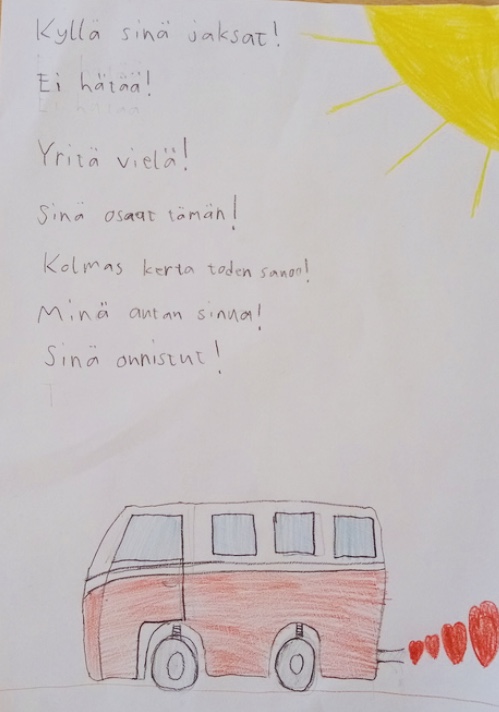 Kyllä sinä jaksat!
Ei hätää!
Yritä vielä!
Sinä osaat tämän!
Kolmas kerta toden sanoo!
Minä autan sinua!
Sinä onnistut!